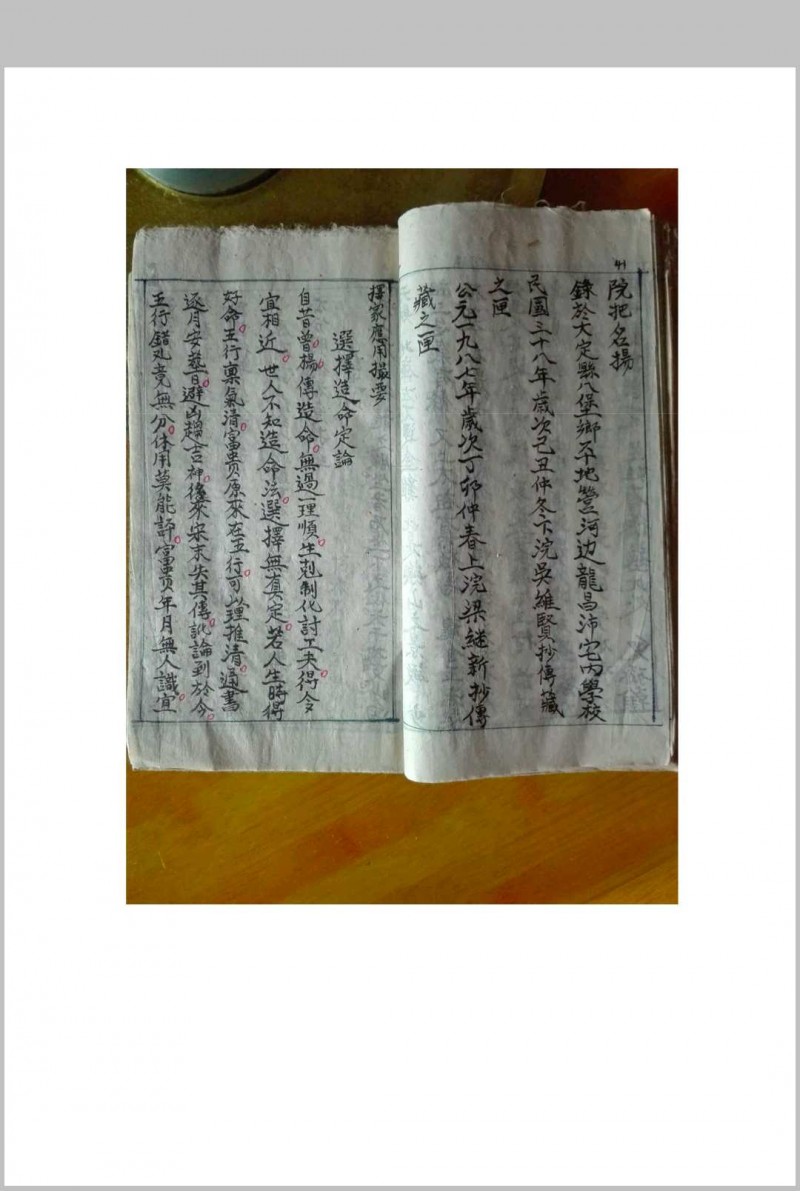 41
院把名揚
錄於大定縣八堡鄉平地營河边龍昌沛宅內學校
民國三十八年歲次己丑仲冬下浣吳維賢抄傳藏
之匣
公元一九八七年歲次丁卯仲春上浣梁继新抄傳
藏之匣
擇家應用撮要
選擇造命定論
自昔曾楊傳造命。無過一理順。生剋制化討工夫。得令
宜相近。世人不知造命法。選擇無真定。若人生時得
好命。五行稟氣清。富貴原來在五行。可以理推清。通書
逐月安葬日。避凶趨吉神。後來宋末失其傳。訛論到於今。
五行錯乱竟無分。休用莫能評。富贵年月無人識。宜